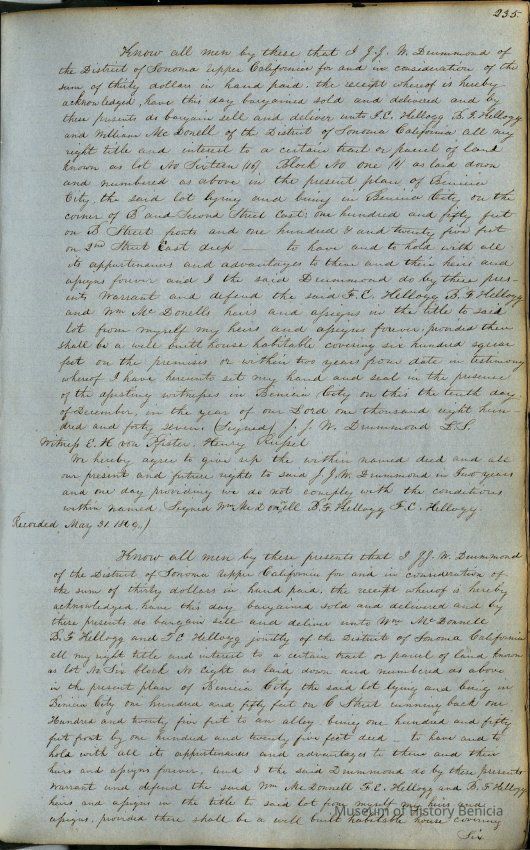 235
Know all men by these that I J.J. W. Drummond of
the District of Sonoma Upper California for and in consideration of the
sum of thirty dollars in hand paid. the receipt whereof is hereby
acknowledged, have this day bargained sold and delivered and by
these presents do bargain sell and deliver unto F.C. Kellogg B. F. Kellogg
and William Mc Donell of the District of Sonoma California all my
right title and interest to a certain tract or parcel of land
known as lot No Sixteen (16) Block No one (1) as laid down
and numbered as above in the present plan of Benicia
City. the said lot lying and being in Benicia City on the
corner of B and Second Street East; one hundred and fifty feet
on B Street fronts and one hundred & and twenty five feet
on 2nd Street East deep — to have and to hold with all
its appurtenances and advantages to them and their heirs and
assigns forever and I the said Drummond do by these pres-
ents Warrant and defend the said F. C. Kellogg B. F Kellogg
and Wm Mc Donells heirs and assigns in the title to said
lot from myself my heirs and assigns forever, provided there
shall be a well built house habitable covering six hundred square
feet on the premises or within two years from date in testimony
whereof I have hereunto set my hand and seal in the presense
of the witnesses in Benicia City on this the tenth day
of December, in the year of our Lord one thousand eight hun-
dred and forty seven. (Signed) J. J. W. Drummond L.S.
Witness E. H. von Pfister, Henry
We hereby agree to give up the within named deed and all
our present and future rights to said J.J.W. Drummond in two years
and one day providing we do not comply with the conditions
within named Signed Wm McDonell B.F. Kellogg F.C. Kellogg.
Recorded, May 31. 1849.)
Know all men by these presents that I J.J. W. Drummond
of the District of Sonoma Upper California for and in consideration of
the sum of thirty dollars in hand paid. the receipt whereof is hereby
acknowledged have this day bargained sold and delivered and by
these presents do bargain sell and deliver unto Wm McDonnell
B. F Kellogg and F.C Kellogg jointly of the District of Sonoma California
all my right title and interest to a certain tract or parcel of land known
as lot No Six block No Eight as laid down and numbered as above
in the present plan of Benicia City the said lot lying and being in
Benicia City one hundred and fifty feet on C Street running back one
Hundred and twenty five feet to an alley being one hundred and fifty
feet front by one hundred and twenty five feet deed — to have and to
hold with all its appurtenances and advantages to them and their
heirs and assigns forever, and I the said Drummond do by these presents
Warrant and defend the said Wm McDonnell F.C. Kellogg and B.F. Kellogg
heirs, and assigns in the title to said lot from myself my heirs and
assigns, provided there shall be a well built habitable house covering
Six
Museum of History Benicia